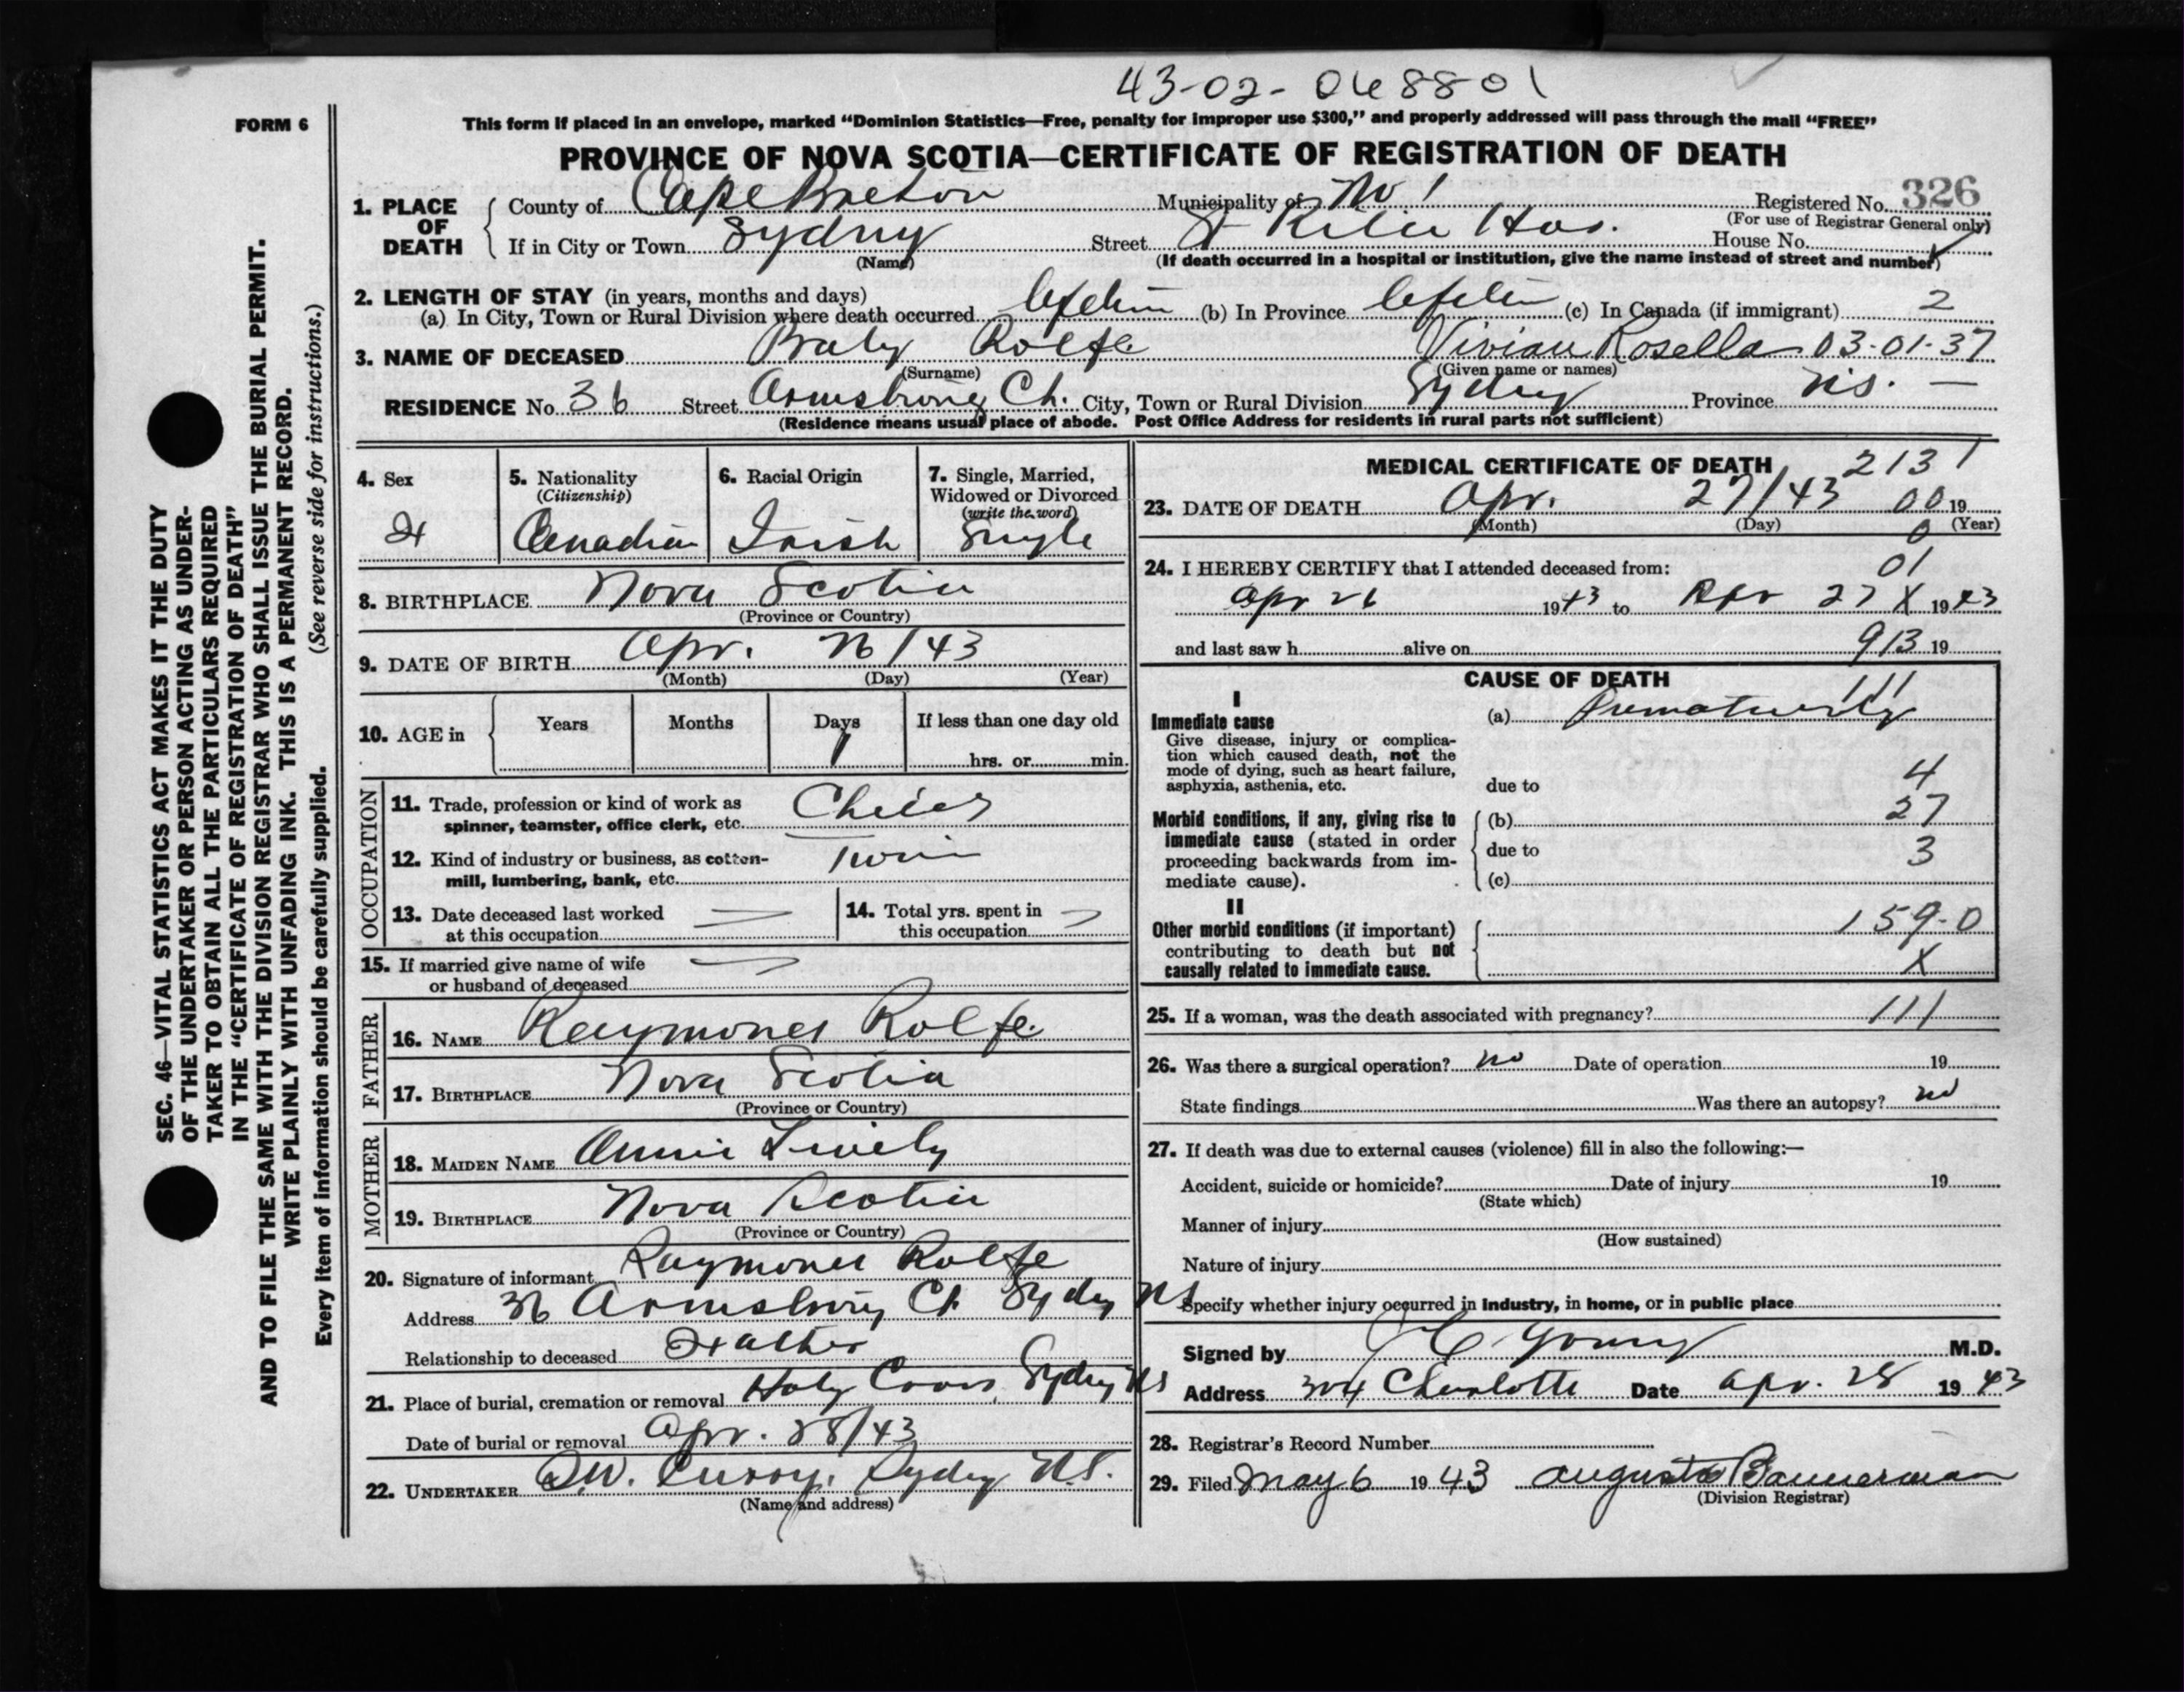 43-02-068801
FORM 6
This form if placed in an envelope, marked “Dominion Statistics—Free, penalty for improper use $300,” and properly addressed will pass through the mail “FREE”
PROVINCE OF NOVA SCOTIA—CERTIFICATE OF REGISTRATION OF DEATH
1. PLACE OF DEATH
County of Cape Breton Municipality of No 1 Registered No. 326
(For use of Registrar General only)
If in City or Town Sydney Street St Rita Hos. House No.
(Name) (If death occurred in a hospital or institution, give the name instead of street and number)
2. LENGTH OF STAY (in years, months and days)
(a) In City, Town or Rural Division where death occurred Lifetim (b) In Province Lifetim (c) In Canada (if immigrant) 2
3. NAME OF DECEASED Baby Rolfe Vivian Rosella 03-01-37
(Surname) (Given name or names)
RESIDENCE No. 36 Street Armstrong Ct. City, Town or Rural Division Sydney Province N.S. —
(Residence means usual place of abode. Post Office Address for residents in rural parts not sufficient)
4. Sex F
5. Nationality (Citizenship) Canadian
6. Racial Origin Irish
7. Single, Married, Widowed or Divorced (write the word) Single
8. BIRTHPLACE Nova Scotia
(Province or Country)
9. DATE OF BIRTH Apr. 26/43
(Month) (Day) (Year)
10. AGE in Years Months Days 1 If less than one day old
hrs. or min.
OCCUPATION
11. Trade, profession or kind of work as spinner, teamster, office clerk, etc. Child
12. Kind of industry or business, as cotton-mill, lumbering, bank, etc. Twin
13. Date deceased last worked at this occupation
14. Total yrs. spent in this occupation
15. If married give name of wife or husband of deceased
FATHER
16. NAME Raymond Rolfe
17. BIRTHPLACE Nova Scotia
(Province or Country)
MOTHER
18. MAIDEN NAME Annie Lively
19. BIRTHPLACE Nova Scotia
(Province or Country)
20. Signature of informant Raymond Rolfe
Address 36 Armstrong Ct Sydney NS
Relationship to deceased Father
21. Place of burial, cremation or removal Holy Cross, Sydney NS
Date of burial or removal Apr. 28/43
22. UNDERTAKER Curry, Sydney N.S.
(Name and address)
MEDICAL CERTIFICATE OF DEATH 2131
23. DATE OF DEATH Apr. 27/43 00 19
(Month) (Day) (Year)
0
24. I HEREBY CERTIFY that I attended deceased from: 01
Apr 26 1943 to Apr 27 X 1943
and last saw h alive on 913 19
CAUSE OF DEATH
111
I
Immediate cause
Give disease, injury or complication which caused death, not the mode of dying, such as heart failure, asphyxia, asthenia, etc.
(a) Prematurity
due to 4
Morbid conditions, if any, giving rise to immediate cause (stated in order proceeding backwards from immediate cause).
(b) 27
due to 3
(c)
II
Other morbid conditions (if important) contributing to death but not causally related to immediate cause.
159-0
X
25. If a woman, was the death associated with pregnancy? 111
26. Was there a surgical operation? no Date of operation 19
State findings Was there an autopsy? no
27. If death was due to external causes (violence) fill in also the following:—
Accident, suicide or homicide? Date of injury 19
(State which)
Manner of injury
(How sustained)
Nature of injury
Specify whether injury occurred in industry, in home, or in public place
Signed by Young M.D.
Address 304 Charlotte Date Apr. 28 1943
28. Registrar's Record Number
29. Filed May 6 1943 Augusta Bannerman
(Division Registrar)
SEC. 46—VITAL STATISTICS ACT MAKES IT THE DUTY
OF THE UNDERTAKER OR PERSON ACTING AS UNDER-
TAKER TO OBTAIN ALL THE PARTICULARS REQUIRED
IN THE “CERTIFICATE OF REGISTRATION OF DEATH”
AND TO FILE THE SAME WITH THE DIVISION REGISTRAR WHO SHALL ISSUE THE BURIAL PERMIT.
WRITE PLAINLY WITH UNFADING INK. THIS IS A PERMANENT RECORD.
Every item of information should be carefully supplied. (See reverse side for instructions.)